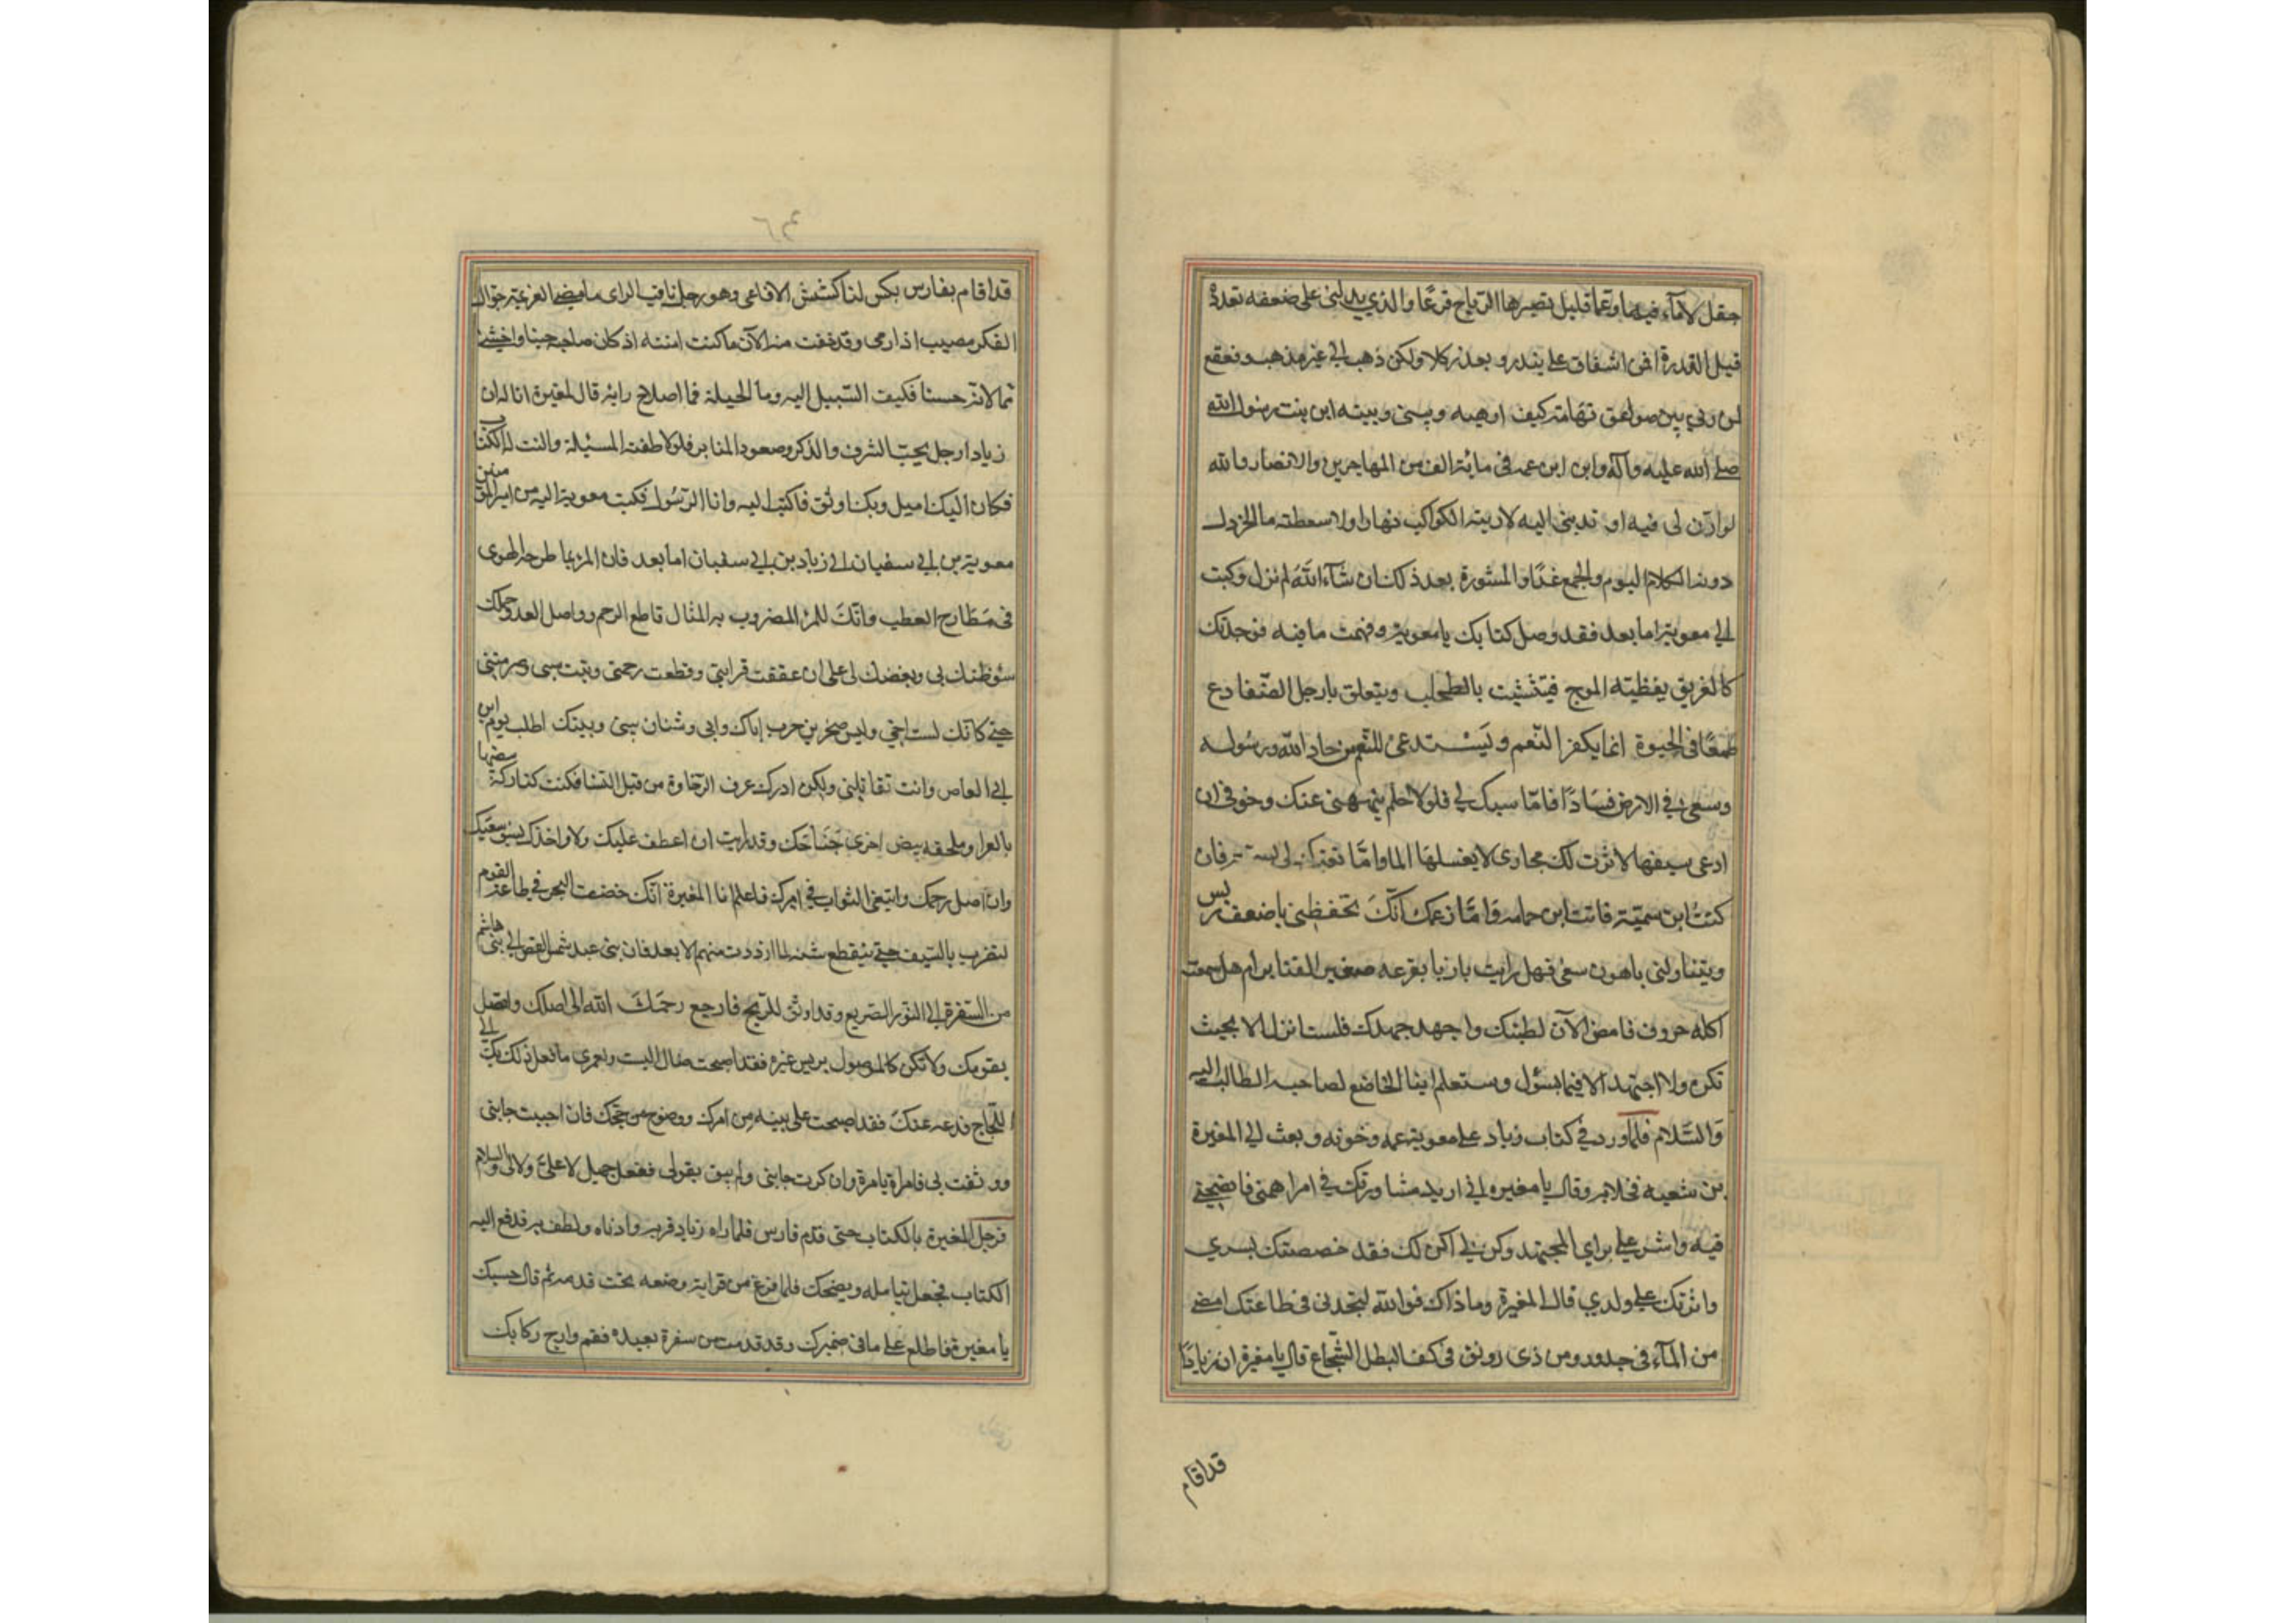 جفل لا ماء فيها وعما قليل تصيرها الرياح قزعًا والذي يدلني على ضعفه تهدده
قبل القدرة افمن اشفاق على ينذر ويعذر كلا ولكن ذهب الى غير مذهب وقعقع
لمن ربي بين صواعق تهامة كيف ارهبه وبيني وبينه ابن بنت رسول الله
صلى الله عليه وآله وابن ابن عمه في مائة الف من المهاجرين والانصار والله
لو اذن لي فيه او ندبني اليه لاريته الكواكب نهارا ولاسعطته ماء الخردل
دونه الكلام اليوم والجمع غدًا والمشورة بعد ذلك ان شآء الله ثم نزل وكتب
الى معوية اما بعد فقد وصل كتابك يا معوية وفهمت ما فيه فوجدتك
كالغريق يغظيته الموج فيتشبث بالطحلب ويتعلق بارجل الضفادع
طمعًا في الحيوة انما يكفر النعم ويستدعي النقم من حاد الله ورسوله
وسعى في الارض فسادًا فاما سبك لي فلولا حلم ينهني عنك وخوفي ان
ادعى سفيها لاثرت لك مخازي لا يغسلها الما واما تعيرك لي بسمية فان
كنتُ ابن سمية فانت ابن حمامه وَامّا زعمك انّك تخفظني باضعف ريش
ويتناولني باهون سعي فهل رايت بازيا يفزعه صغير القنابر ام هل سمعت
اكله خروف فامض الآن لطيتك واجهد جهدك فلست انزل الا بحيث
تكره ولا اجتهد الا فيما يسؤك وستعلم اينا الخاضع لصاحبه الطالب اليه
وَالسّلام فلما ورد كتاب زياد على معوية غمه وخونه وبعث الى المغيرة
بن شعبه فخلا به وقال يا مغيره اني اريد مشاورتك في امر اهمني فانصحني
فيه واشر علي براي المجتهد وكن لي اكن لك فقد خصصتك بسري
واثرتك على ولدي قال المغيرة وما ذاك فوالله لتجدني في طاعتك امضى
من المآء في حدور ومن ذي رونق في كف البطل الشّجاع قال يا مغيرة ان زيادًا
قد اقام
قد اقام بفارس يكش لنا كشيش الافاعي وهو رجل ثاقب الراى ماضي العزيمة جوال
الفكر مصيب اذا رمى وقد خفت منه الآن ما كنت امنته اذ كان صاحبه حيا واخشى
مما لاته حسنا فكيف السّبيل اليه وما الحيلة فما اصلاح رايه قال المغيرة انا له ان
زيادا رجل يحبّ الشرف والذكر وصعود المنابر فلو لاطفته المسئلة والنت له الكتاب
فكان اليك اميل وبك اوثق فاكتب اليه وانا الرّسول فكتب معوية اليه من امير المؤمنين
معوية بن ابي سفيان الى زياد بن ابي سفيان اما بعد فان المرء بما طرحه الهوى
في مَطارح العطب وانّكَ للمرء المضروب به المثال قاطع الرحم وواصل العدو حملك
سؤ ظنك بي وبغضك لي على ان عققت قرابتي وقطعت رحمتي وبتت نسبي وحرمتي
حتى كانك لست اخي وليس صخر بن حرب اباك وابي وشتان بيني وبينك اطلب بدم ابن
ابي العاص وانت تقاتلني ولكن ادركك عرف الرخاوة من قبل النسا فكنت كتاركة بيضها
بالعرا وملحفة بيض اخرى جَنَاحَك وقد رايت ان اعطف عليك ولا واخذك بسوء سعيك
وان اصل رحمك وابتغي الثواب في امرك فاعلم ابا المغيرة انّك لو خضت البحر في طاعة القوم
لتضرب بالسّيف حتى ينقطع متنه لما ازددت منهم الا بعدا فان بني عبد شمس ابغض الى بني هاشم
من الشفرة الى الثور الصريع وقد اوثق للذبح فارجع رحمَكَ الله الى اصلك واتصل
بقومك ولا تكن كالموصول بريش غيره فقد اصبحت ضال النسب ولعمري ما فعل ذلك بك الا
اللّجاج فدعه عنكَ فقد اصبحت على بينه من امرك ووضوح من حجتك فان احببت جانبي
ووثقت بي فامرة بامرة وان كرهت جانبي ولم تثق بقولي ففعل جميل لا علي ولا لى والسلام
فرحل المغيرة بالكتاب حتى قدم فارس فلما راه زياد قربه وادناه ولطف به فدفع اليه
الكتاب فجعل يتامله ويضحك فلما فرغ من قراته وضعه تحت قدمه ثم قال حسبك
يا مغيرة فاطلع على ما في ضميرك وقد قدمت من سفرة بعيده فقم وارح ركابك